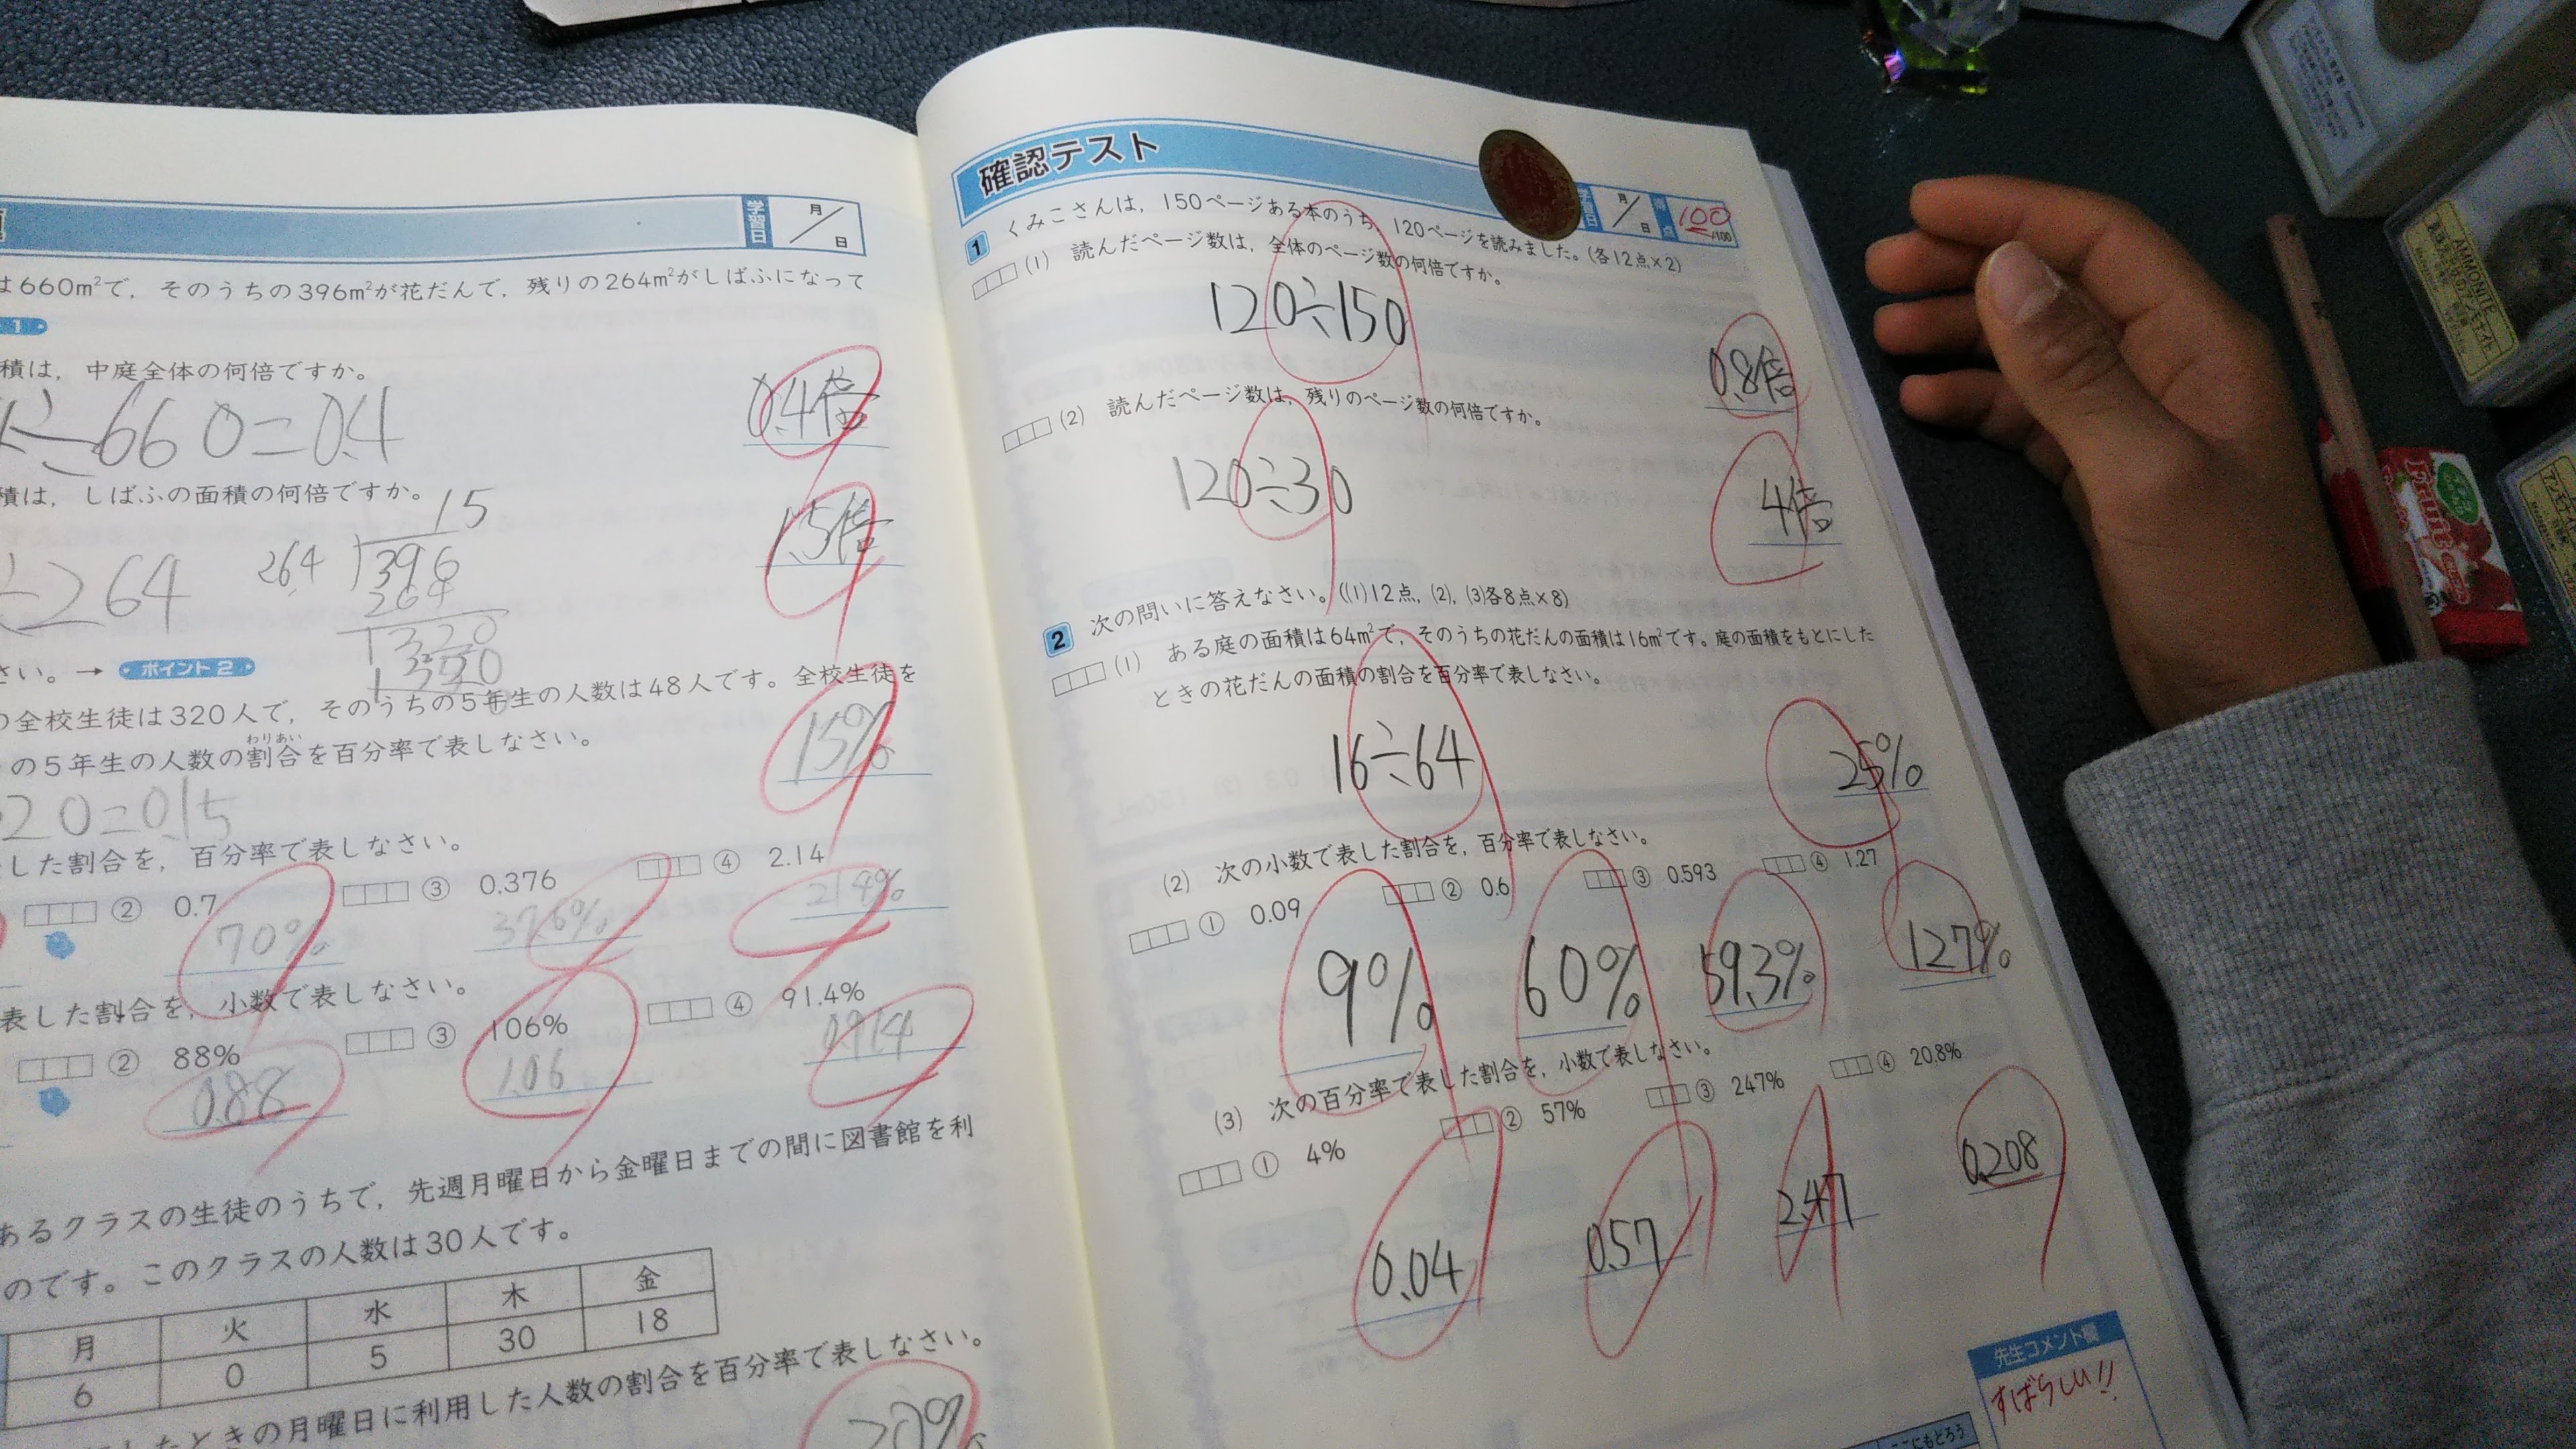 学習日
月／日
は660m²で，そのうちの396m²が花だんで，残りの264m²がしばふになって
1
積は，中庭全体の何倍ですか。
÷660=0.4
0.4倍
積は，しばふの面積の何倍ですか。
÷264
15
264 396
264
1320
1320
1.5倍
さい。→ ポイント2
の全校生徒は320人で，そのうちの5年生の人数は48人です。全校生徒を
の5年生の人数の割合を百分率で表しなさい。
わりあい
20=0.15
15%
した割合を，百分率で表しなさい。
② 0.7
70%
③ 0.376
37.6%
④ 2.14
214%
表した割合を，小数で表しなさい。
② 88%
0.88
③ 106%
1.06
④ 91.4%
0.914
あるクラスの生徒のうちで，先週月曜日から金曜日までの間に図書館を利
のです。このクラスの人数は30人です。
月 火 水 木 金
6 0 5 30 18
したときの月曜日に利用した人数の割合を百分率で表しなさい。
20%
確認テスト
学習日
月／日
得点
100
/100
1 くみこさんは，150ページある本のうち，120ページを読みました。(各12点×2)
(1) 読んだページ数は，全体のページ数の何倍ですか。
120÷150
0.8倍
(2) 読んだページ数は，残りのページ数の何倍ですか。
120÷30
4倍
2 次の問いに答えなさい。((1)12点，(2)，(3)各8点×8)
(1) ある庭の面積は64m²で，そのうちの花だんの面積は16m²です。庭の面積をもとにした
ときの花だんの面積の割合を百分率で表しなさい。
16÷64
25%
(2) 次の小数で表した割合を，百分率で表しなさい。
① 0.09 ② 0.6 ③ 0.593 ④ 1.27
9% 60% 59.3% 127%
(3) 次の百分率で表した割合を，小数で表しなさい。
① 4% ② 57% ③ 247% ④ 20.8%
0.04 0.57 2.47 0.208
先生コメント欄
すばらしい!!
ここにもどろう
AMMONITE
Fruit